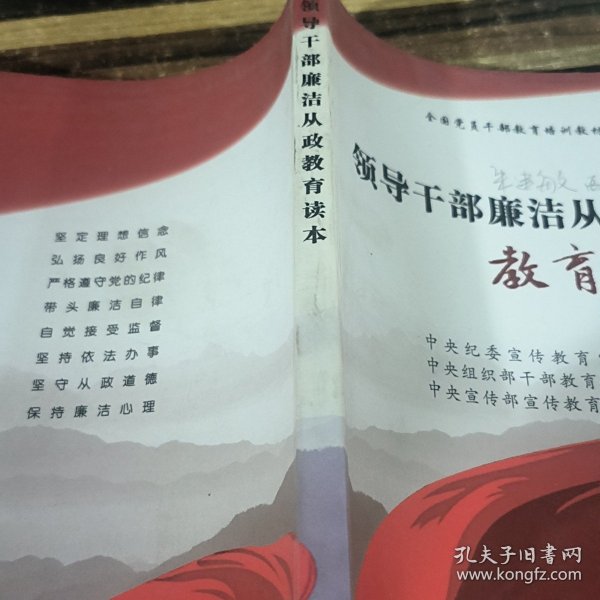 领导干部廉洁从政教育读本
坚定理想信念
弘扬良好作风
严格遵守党的纪律
带头廉洁自律
自觉接受监督
坚持依法办事
坚守从政道德
保持廉洁心理
全国党员干部教育培训教材
领导干部廉洁从
教育
中央纪委宣传教育
中央组织部干部教育
中央宣传部宣传教育
孔夫子旧书网
www.kongfz.com